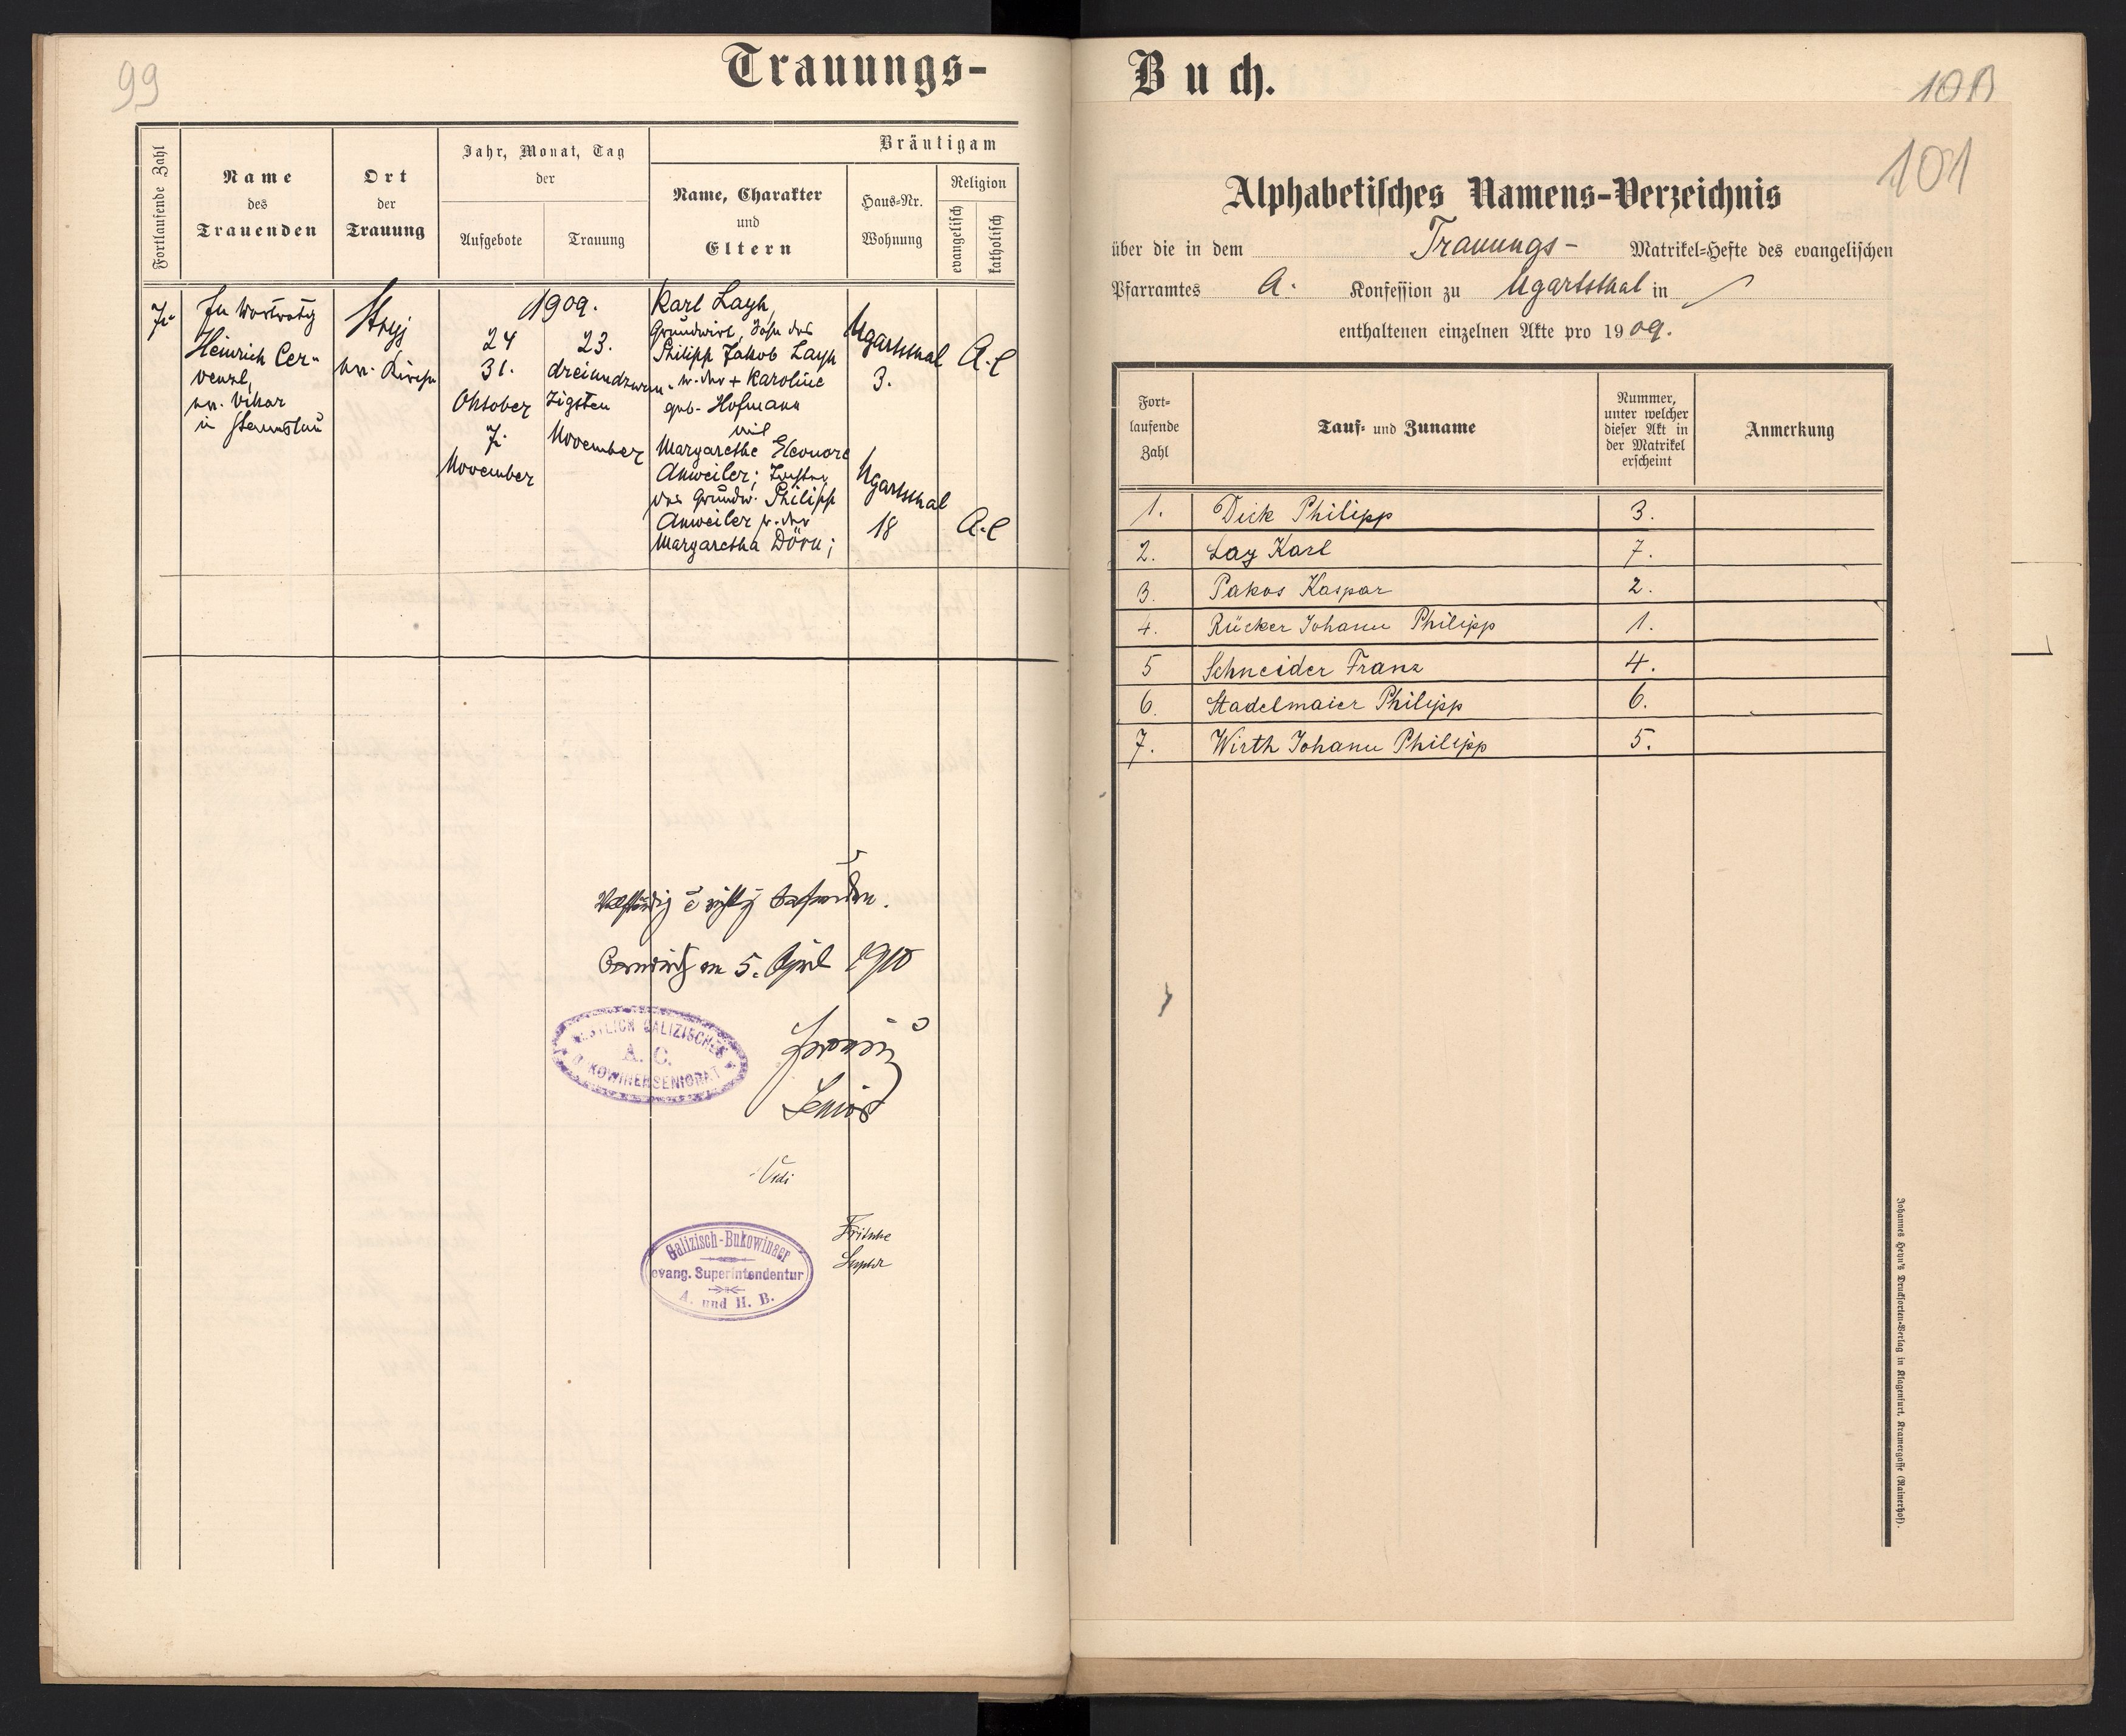 99
Trauungs-
Fortlaufende Zahl
Name
des
Trauenden
Ort
der
Trauung
Jahr, Monat, Tag
der
Aufgebote
Trauung
Bräutigam
Name, Charakter
und
Eltern
Haus-Nr.
Wohnung
Religion
evangelisch
katholisch
7.
In Vertretung
Heinrich Cer-
venzl,
ev. Vikar
in Stanislau
Stryj
ev. Kirche
1909.
24
31.
Oktober
7.
November
23.
dreiundzwan-
zigsten
November
Karl Layh,
Grundwirt, Sohn des
Philipp Jakob Layh
u. der + Karoline
geb. Hofmann
mit
Margarethe Eleonore
Anweiler; Tochter
des Grundw. Philipp
Anweiler u. der
Margaretha Dörn;
Ugartsthal
3.
Ugartsthal
18
A.C
A.C
Vollständig & richtig befunden.
am 5. April 1910
ÖSTLICH GALIZISCHES
A. C.
BUKOWINER SENIORAT
Senior
Vidi
Galizisch-Bukowinaer
evang. Superintendentur
A. und H. B.
Fritsche
Suptdt
Buch.
100
101
Alphabetisches Namens-Verzeichnis
über die in dem Trauungs- Matrikel-Hefte des evangelischen
Pfarramtes A. Konfession zu Ugartsthal in
enthaltenen einzelnen Akte pro 1909.
Fort-
laufende
Zahl
Tauf- und Zuname
Nummer,
unter welcher
dieser Akt in
der Matrikel
erscheint
Anmerkung
1. Dick Philipp 3.
2. Lay Karl 7.
3. Pakos Kaspar 2.
4. Rücker Johann Philipp 1.
5 Schneider Franz 4.
6. Stadelmaier Philipp 6.
7. Wirth Johann Philipp 5.
Johannes Heyn's Drucksorten-Verlag in Klagenfurt, Kramergasse (Rainerhof).